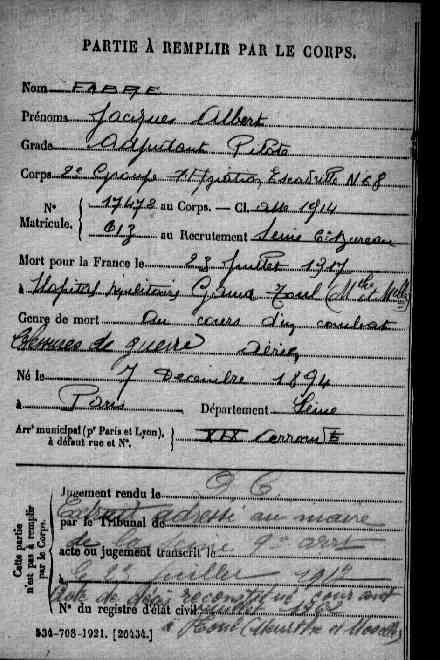 PARTIE À REMPLIR PAR LE CORPS.
Nom FABRE
Prénoms Jacques Albert
Grade Adjudant Pilote
Corps 2e Groupe d'Aviation, Escadrille N 68
N° Matricule. 17472 au Corps. — Cl. 1914
613 au Recrutement Seine 6e Bureau
Mort pour la France le 23 Juillet 1917
à Hopital militaire Gama Toul (Mthe et Mlle)
Genre de mort Au cours d'un combat
Blessures de guerre aérien
Né le 7 Decembre 1894
à Paris Département Seine
Arrt municipal (pr Paris et Lyon), à défaut rue et N°. XIX Arront
Cette partie n'est pas à remplir par le Corps.
Jugement rendu le
par le Tribunal de Extrait adressé au maire
acte ou jugement transcrit le de la 9e arrt
à le Juillet
Acte de décès reconstitué, courant
N° du registre d'état civil juillet
534-708-1921. [20434.] à Toul (Meurthe et Moselle)